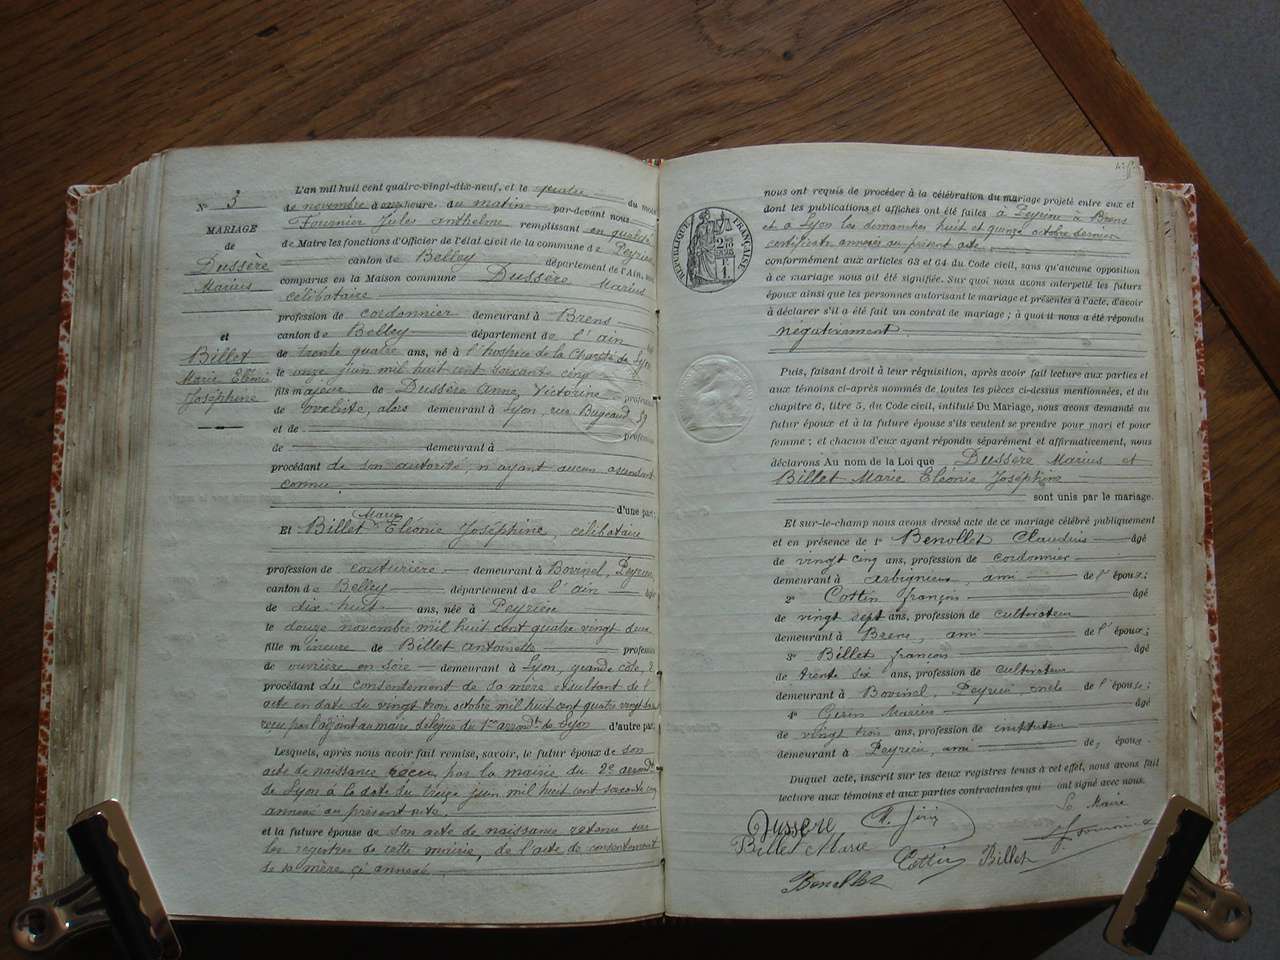 N° 3
MARIAGE
de
Dussère
Marius
et
Billet
Marie Eléonie
Joséphine
L'an mil huit cent quatre-vingt-dix-neuf, et le quatre du mois
de novembre à onze heures du matin par-devant nous
Fournier Jules Anthelme remplissant en qualité
de Maire les fonctions d'Officier de l'état civil de la commune de Peyrieu
canton de Belley département de l'Ain, sont
comparus en la Maison commune Dussère Marius
célibataire
profession de cordonnier demeurant à Brens
canton de Belley département de l'ain âgé
de trente quatre ans, né à l'hospice de la Charité de Lyon
le onze juin mil huit cent soixante cinq
fils majeur de Dussère Anne Victorine profession
de ovaliste, alors demeurant à Lyon, rue Bugeaud 59
et de profession
de demeurant à
procédant de son autorité, n'ayant aucun ascendant
connu. d'une part;
Et Billet Marie Eléonie Joséphine, célibataire
profession de couturière demeurant à Bovinel, Peyrieu
canton de Belley département de l'ain âgée
de dix huit ans, née à Peyrieu
le douze novembre mil huit cent quatre vingt
fille mineure de Billet Antoinette profession
de ouvrière en soie demeurant à Lyon, grande côte,
procédant du consentement de sa mère résultant de l'
acte en date du vingt trois octobre mil huit cent quatre vingt
reçu par l'adjoint au maire délégué du 1er arrondt de Lyon d'autre part;
Lesquels, après nous avoir fait remise, savoir, le futur époux de son
acte de naissance reçu par la mairie du 2e arrondt
de Lyon à la date du treize juin mil huit cent soixante cinq
annexé au présent acte,
et la future épouse de son acte de naissance retenu sur
les registres de cette mairie, de l'acte de consentement
de sa mère ci annexé
RÉPUBLIQUE FRANÇAISE
nous ont requis de procéder à la célébration du mariage projeté entre eux et
dont les publications et affiches ont été faites à Peyrieu à Brens
et à Lyon les dimanches huit et quinze octobre dernier
certificats annexés au présent acte,
conformément aux articles 63 et 64 du Code civil, sans qu'aucune opposition
à ce mariage nous ait été signifiée. Sur quoi nous avons interpellé les futurs
époux ainsi que les personnes autorisant le mariage et présentes à l'acte, d'avoir
à déclarer s'il a été fait un contrat de mariage; à quoi il nous a été répondu
négativement
Puis, faisant droit à leur réquisition, après avoir fait lecture aux parties et
aux témoins ci-après nommés de toutes les pièces ci-dessus mentionnées, et du
chapitre 6, titre 5, du Code civil, intitulé Du Mariage, nous avons demandé au
futur époux et à la future épouse s'ils veulent se prendre pour mari et pour
femme; et chacun d'eux ayant répondu séparément et affirmativement, nous
déclarons Au nom de la Loi que Dussère Marius et
Billet Marie Eléonie Joséphine
sont unis par le mariage.
Et sur-le-champ nous avons dressé acte de ce mariage célébré publiquement
et en présence de 1° Benollet Claudius âgé
de vingt cinq ans, profession de cordonnier
demeurant à Arbignieu, ami de l'époux;
2° Cottin françois âgé
de vingt sept ans, profession de cultivateur
demeurant à Brens, ami de l'époux;
3° Billet françois âgé
de trente six ans, profession de cultivateur
demeurant à Bovinel, Peyrieu, oncle de l'épouse;
4° Gerin Marius âgé
de vingt trois ans, profession de instituteur
demeurant à Peyrieu, ami de époux
Duquel acte, inscrit sur les deux registres tenus à cet effet, nous avons fait
lecture aux témoins et aux parties contractantes qui ont signé avec nous.
Le Maire
Dussère
Billet Marie
Cottin
Billet
Benollet